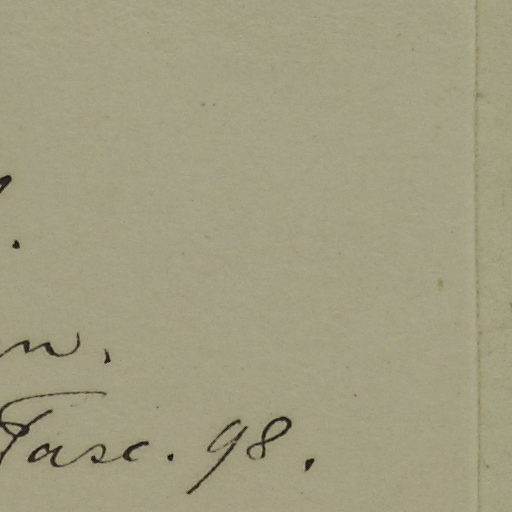 Fasc. 98.